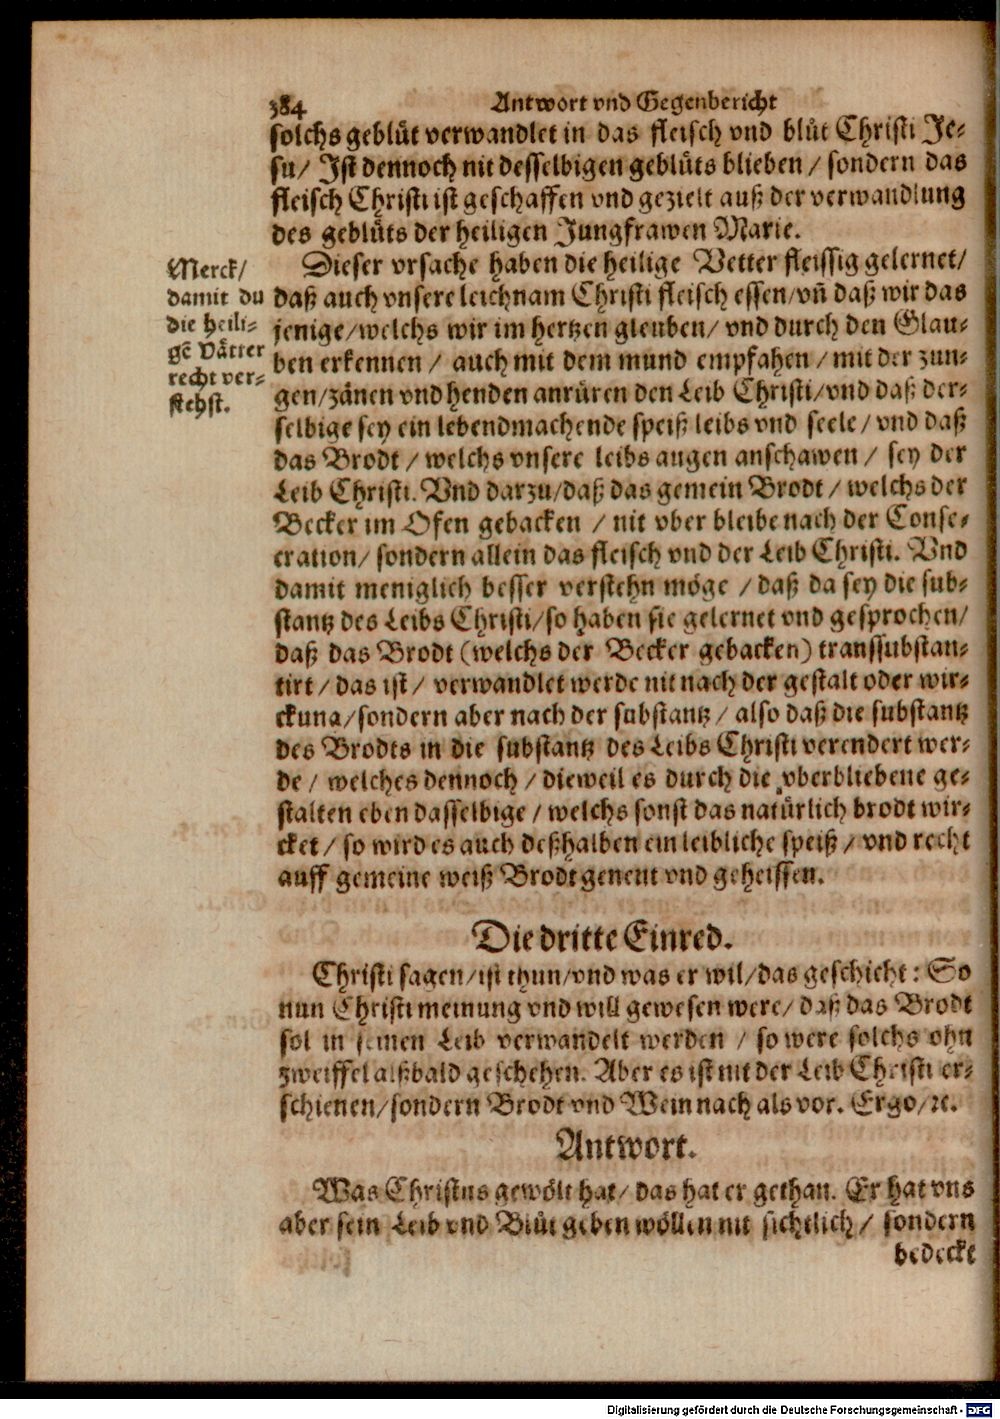 384 Antwort vnd Gegenbericht
solchs geblüt verwandlet in das fleisch vnd blüt Christi Je-
su/ Ist dennoch nit desselbigen geblüts blieben / sondern das
fleisch Christi ist geschaffen vnd gezielt auß der verwandlung
des geblüts der heiligen Jungfrawen Marie.
Merck/
damit du
die heili-
gē Vätter
recht ver-
stehst.
Dieser vrsache haben die heilige Vetter fleissig gelernet/
daß auch vnsere leichnam Christi fleisch essen/vn̄ daß wir das
jenige/welchs wir im hertzen gleuben/ vnd durch den Glau-
ben erkennen / auch mit dem mund empfahen / mit der zun-
gen/zänen vnd henden anrüren den Leib Christi/vnd daß der-
selbige sey ein lebendmachende speiß leibs vnd seele/ vnd daß
das Brodt / welchs vnsere leibs augen anschawen / sey der
Leib Christi. Vnd darzu/daß das gemein Brodt / welchs der
Becker im Ofen gebacken / nit vber bleibe nach der Conse-
cration/ sondern allein das fleisch vnd der Leib Christi. Vnd
damit meniglich besser verstehn möge / daß da sey die sub-
stantz des Leibs Christi/so haben sie gelernet vnd gesprochen/
daß das Brodt (welchs der Becker gebacken) transsubstan-
tirt / das ist / verwandlet werde nit nach der gestalt oder wir-
ckung/sondern aber nach der substantz / also daß die substantz
des Brodts in die substantz des Leibs Christi verendert wer-
de / welches dennoch / dieweil es durch die vberbliebene ge-
stalten eben dasselbige / welchs sonst das natürlich brodt wir-
cket / so wird es auch deßhalben ein leibliche speiß / vnd recht
auff gemeine weiß Brodt genent vnd geheissen.
Die dritte Einred.
Christi sagen/ist thun/vnd was er wil/das geschicht: So
nun Christi meinung vnd will gewesen were/ daß das Brodt
sol in seinen Leib verwandelt werden / so were solchs ohn
zweiffel alßbald geschehen. Aber es ist nit der Leib Christi er-
schienen/sondern Brodt vnd Wein nach als vor. Ergo/ꝛc.
Antwort.
Was Christus gewölt hat/ das hat er gethan. Er hat vns
aber sein Leib vnd Blüt geben wöllen nit sichtlich / sondern
bedeckt
Digitalisierung gefördert durch die Deutsche Forschungsgemeinschaft - DFG